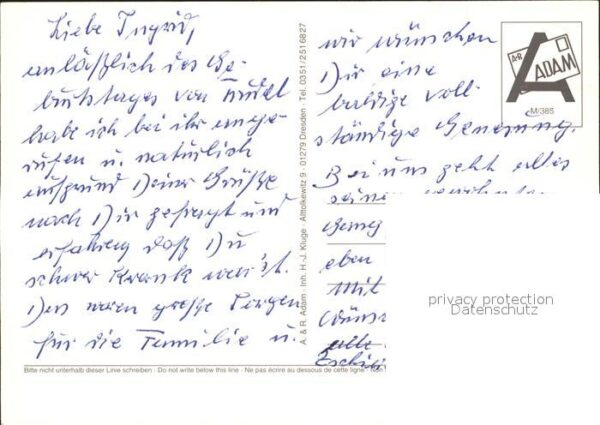 Liebe Ingrid,
anläßlich des Ge-
burtstages von Trudel
habe ich bei ihr ange-
rufen u. natürlich
aufgrund Deiner Grüße
nach Dir gefragt und
erfahren, daß Du
schwer krank warst.
Das waren große Sorgen
für die Familie u.
wir wünschen
Dir eine
baldige voll-
ständige Genesung.
Bei uns geht alles
seinen
eben
Mit
Wüns
alle
A·R
ADAM
M/385
A. & R. Adam · Inh. H.-J. Kluge · Alttolkewitz 9 · 01279 Dresden · Tel. 0351/2516827
privacy protection
Datenschutz
Bitte nicht unterhalb dieser Linie schreiben · Do not write below this line · Ne pas écrire au dessous de cette ligne